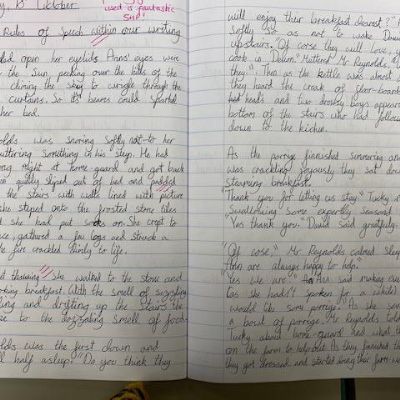 used is fantastic
SNP!
y, 13 October
Rules of Speech within our writing
open her eyelids Anns' eyes were
the Sun, peeking over the hills of the
the sky to wriggle through the
curtains. So its beams could
her bed.
olds was snoring softly next to her
uttering something in his sleep. He had
long night at home guard and got back
quietly sliped out of bed and padded
the stairs with walls lined with picture
she steped onto the frosted stone tiles
she had put socks on. She crept to
gathered a few logs and struck a
fire crackled to life.
she walked to the stove and
breakfast. With the smell of
and drifting up the stairs the
to the smell of food.
olds was the first down and
half asleep. "Do you think they
will enjoy their breakfast dearest?"
softly so as not to wake
upstairs. "Of corse they will love, your
cook is Delion." Muttered Mr Reynolds.
they". Then as the kettle was almost
they heard the creak of floor-boards
heads and two drowsy boys appeared
bottom of the stairs who had followed
down to the kichen.
As the porrige finnished simmering and
was crackling joyously they sat down
steaming breakfast.
"Thank you for letting us stay" Tucky
Swallowing some
"Yes thank you." David said greatfully.
"Of corse," Mr Reynolds
Ann are always happy to help.
"Yes we are" Ann said making
(as she hadn't spoken for a while)
would like some porrige. As she
a bowl of porrige Mr Reynolds told
Tucky about home guard and what
on the farm to help out. As they finished
they got dressed and started doing their farm